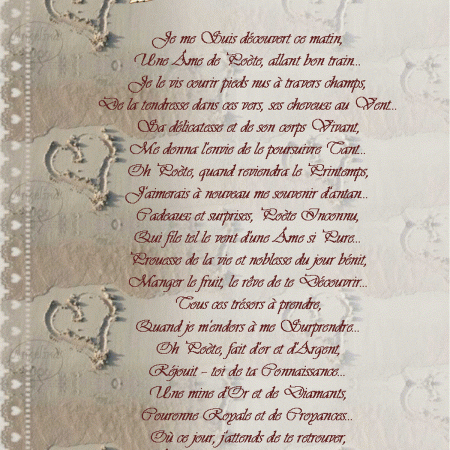 Je me Suis découvert ce matin,
Une Âme de Poète, allant bon train...
Je le vis courir pieds nus à travers champs,
De la tendresse dans ces vers, ses cheveux au Vent...
Sa délicatesse et de son corps Vivant,
Me donna l'envie de le poursuivre Tant...
Oh Poète, quand reviendra le Printemps,
J'aimerais à nouveau me souvenir d'antan...
Cadeaux et surprises, Poète Inconnu,
Qui file tel le vent d'une Âme si Pure...
Prouesse de la vie et noblesse du jour bénit,
Manger le fruit, le rêve de te Découvrir...
Tous ces trésors à prendre,
Quand je m'endors à me Surprendre...
Oh Poète, fait d'or et d'Argent,
Réjouit - toi de ta Connaissance...
Une mine d'Or et de Diamants,
Couronne Royale et de Croyances...
Où ce jour, j'attends de te retrouver,